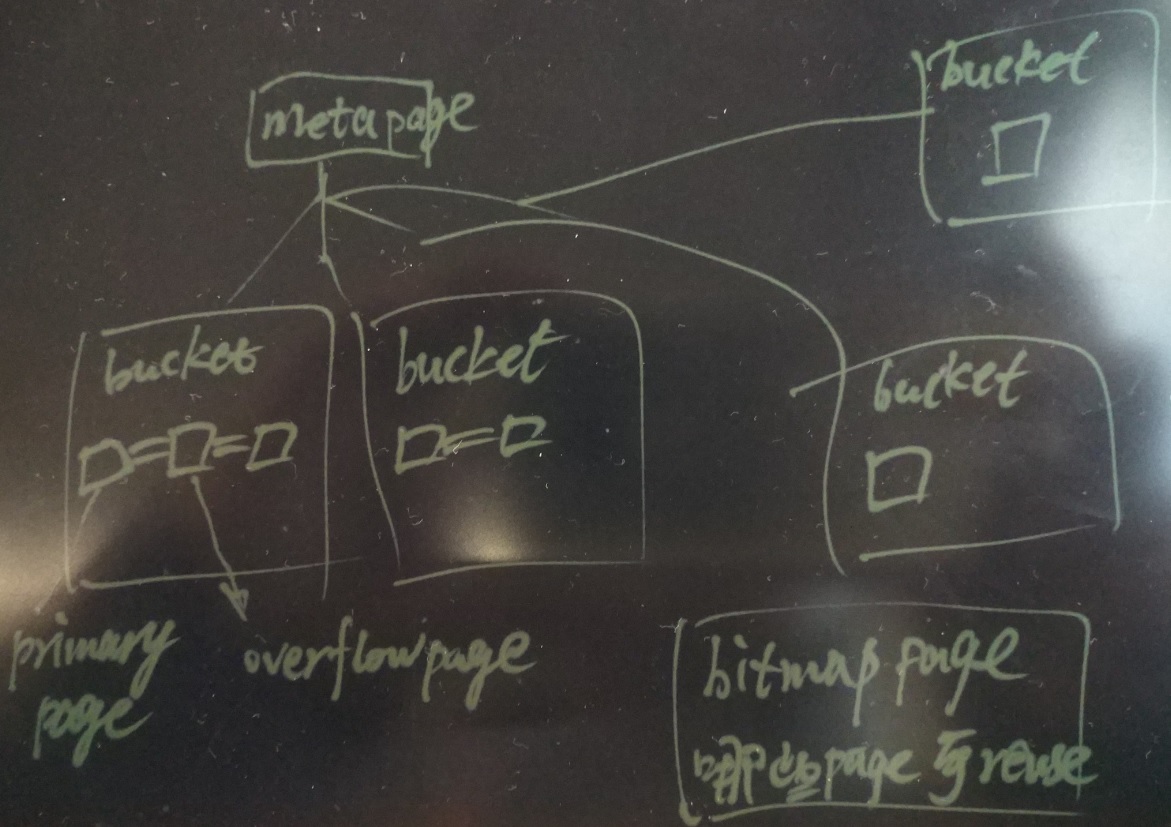 metapage
bucket
bucket
bucket
bucket
primary
page
overflowpage
bitmap page
哪些page可reuse